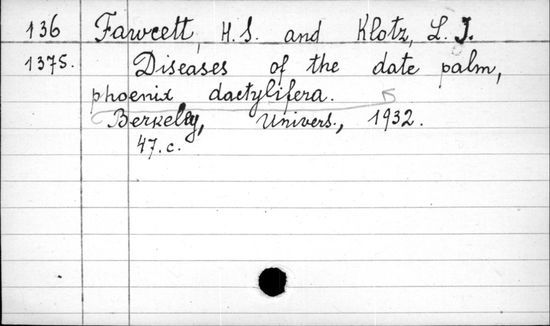 136 Fawcett, H.S. and Klotz, L.J.
1375. Diseases of the date palm,
phoenix dactylifera.
Berkeley, Univers., 1932.
47.c.